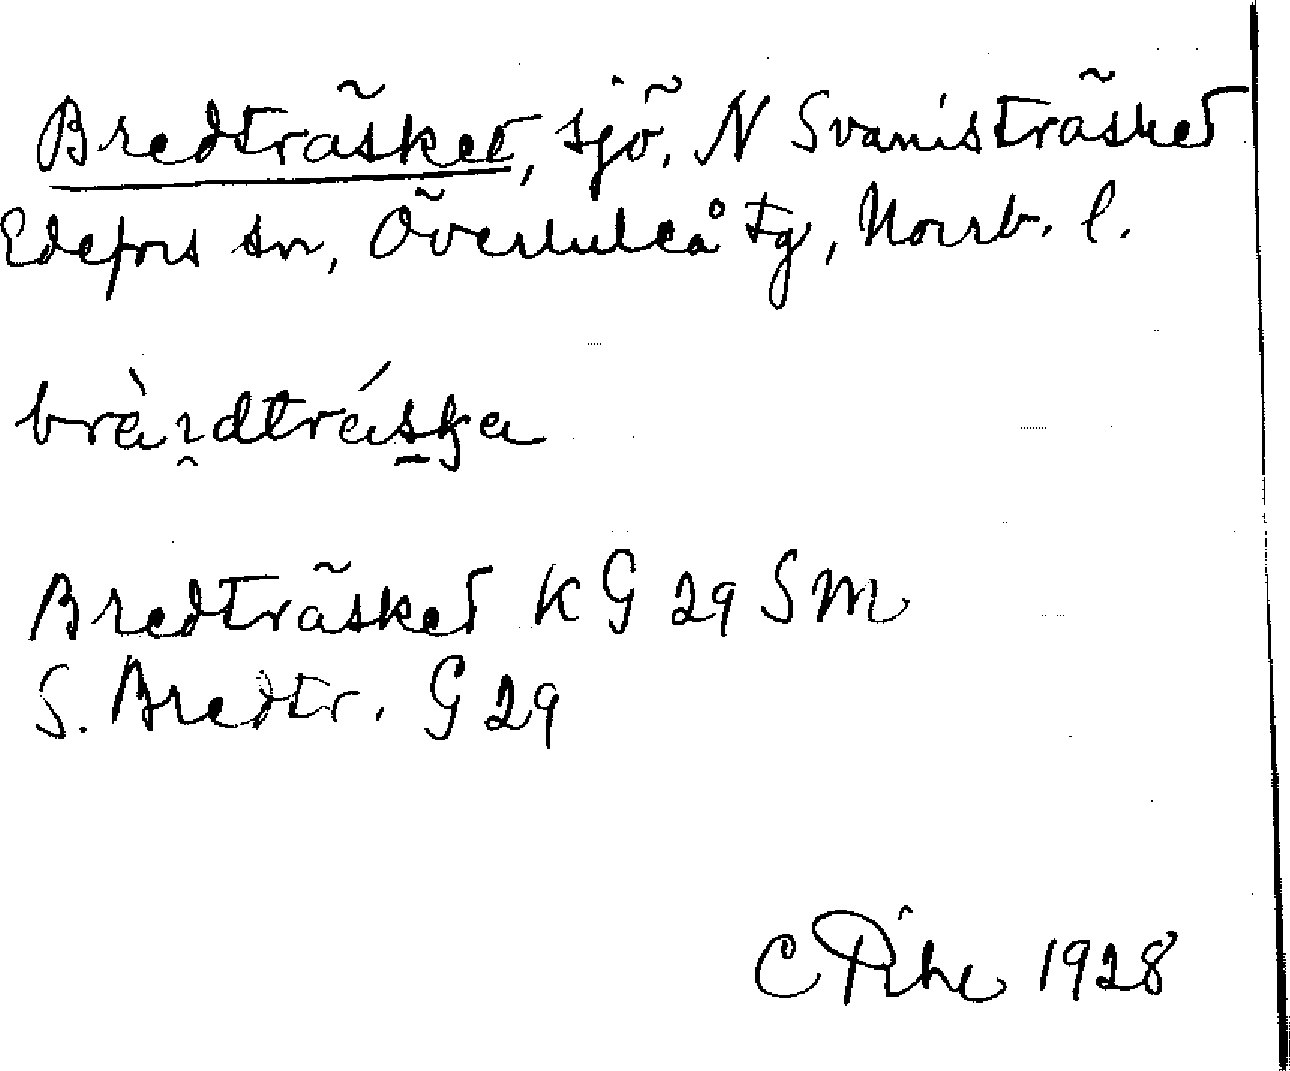 Bredträsket, sjö, N Svanisträsket
Edefors sn, Överluleå tg, Norrb. l.
Bredträsket KG 29 SM
S. Bredtr. G 29
C Pihl 1928